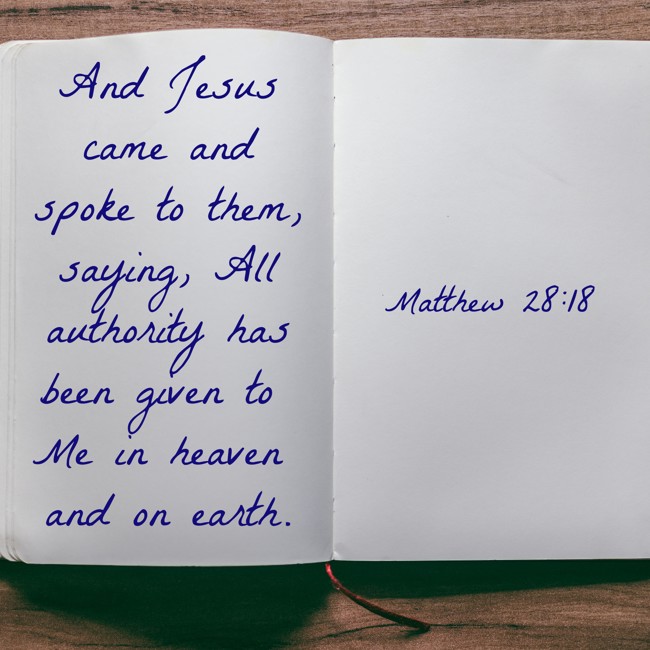 And Jesus
came and
spoke to them,
saying, All
authority has
been given to
Me in heaven
and on earth.
Matthew 28:18